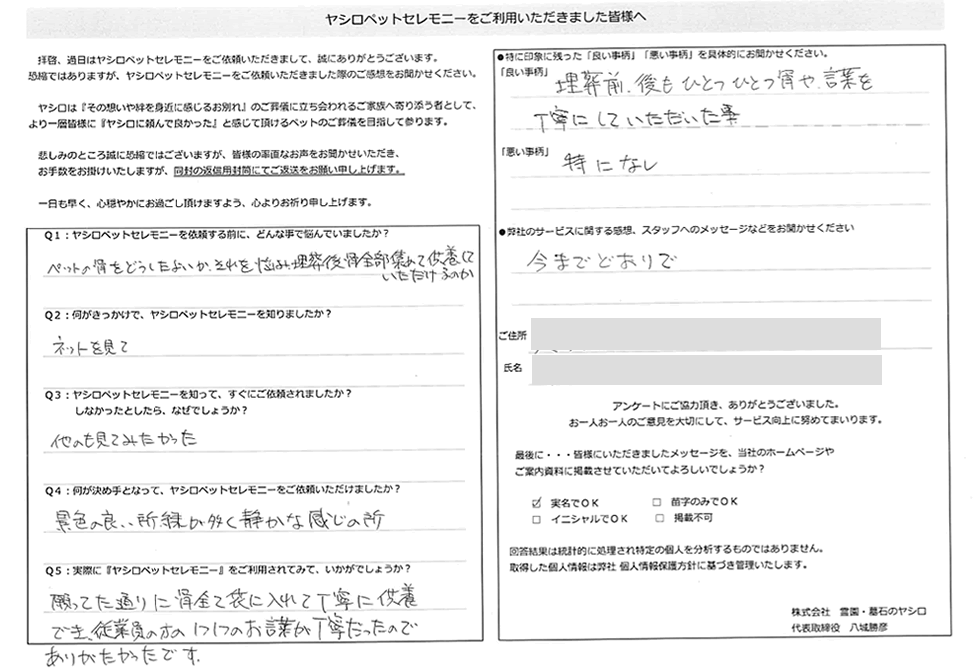 ヤシロペットセレモニーをご利用いただきました皆様へ
拝啓、過日はヤシロペットセレモニーをご依頼いただきまして、誠にありがとうございます。
恐縮ではありますが、ヤシロペットセレモニーをご依頼いただきました際のご感想をお聞かせください。
ヤシロは『その想いや絆を身近に感じるお別れ』のご葬儀に立ち会われるご家族へ寄り添う者として、
より一層皆様に『ヤシロに頼んで良かった』と感じて頂けるペットのご葬儀を目指して参ります。
悲しみのところ誠に恐縮ではございますが、皆様の率直なお声をお聞かせいただき、
お手数をお掛けいたしますが、同封の返信用封筒にてご返送をお願い申し上げます。
一日も早く、心穏やかにお過ごし頂けますよう、心よりお祈り申し上げます。
Q1:ヤシロペットセレモニーを依頼する前に、どんな事で悩んでいましたか?
ペットの骨をどうしたよいか、それを悩み、埋葬後、骨全部集めて供養して
いただけるのか
Q2:何がきっかけで、ヤシロペットセレモニーを知りましたか?
ネットを見て
Q3:ヤシロペットセレモニーを知って、すぐにご依頼されましたか?
しなかったとしたら、なぜでしょうか?
他のも見てみたかった
Q4:何が決め手となって、ヤシロペットセレモニーをご依頼いただけましたか?
景色の良い所、緑が多く静かな感じの所
Q5:実際に『ヤシロペットセレモニー』をご利用されてみて、いかがでしょうか?
願ってた通りに骨全て袋に入れて丁寧に供養
でき、従業員の方の1つ1つのお言葉が丁寧だったので
ありがたかったです。
●特に印象に残った「良い事柄」「悪い事柄」を具体的にお聞かせください。
「良い事柄」
埋葬前、後もひとつひとつ骨や、言葉を
丁寧にしていただいた事
「悪い事柄」
特になし
●弊社のサービスに関する感想、スタッフへのメッセージなどをお聞かせください
今までどおりで
ご住所
氏名
アンケートにご協力頂き、ありがとうございました。
お一人お一人のご意見を大切にして、サービス向上に努めてまいります。
最後に・・・皆様にいただきましたメッセージを、当社のホームページや
ご案内資料に掲載させていただいてよろしいでしょうか?
☑ 実名でOK □ 苗字のみでOK
□ イニシャルでOK □ 掲載不可
回答結果は統計的に処理され特定の個人を分析するものではありません。
取得した個人情報は弊社 個人情報保護方針に基づき管理いたします。
株式会社 霊園・墓石のヤシロ
代表取締役 八城勝彦